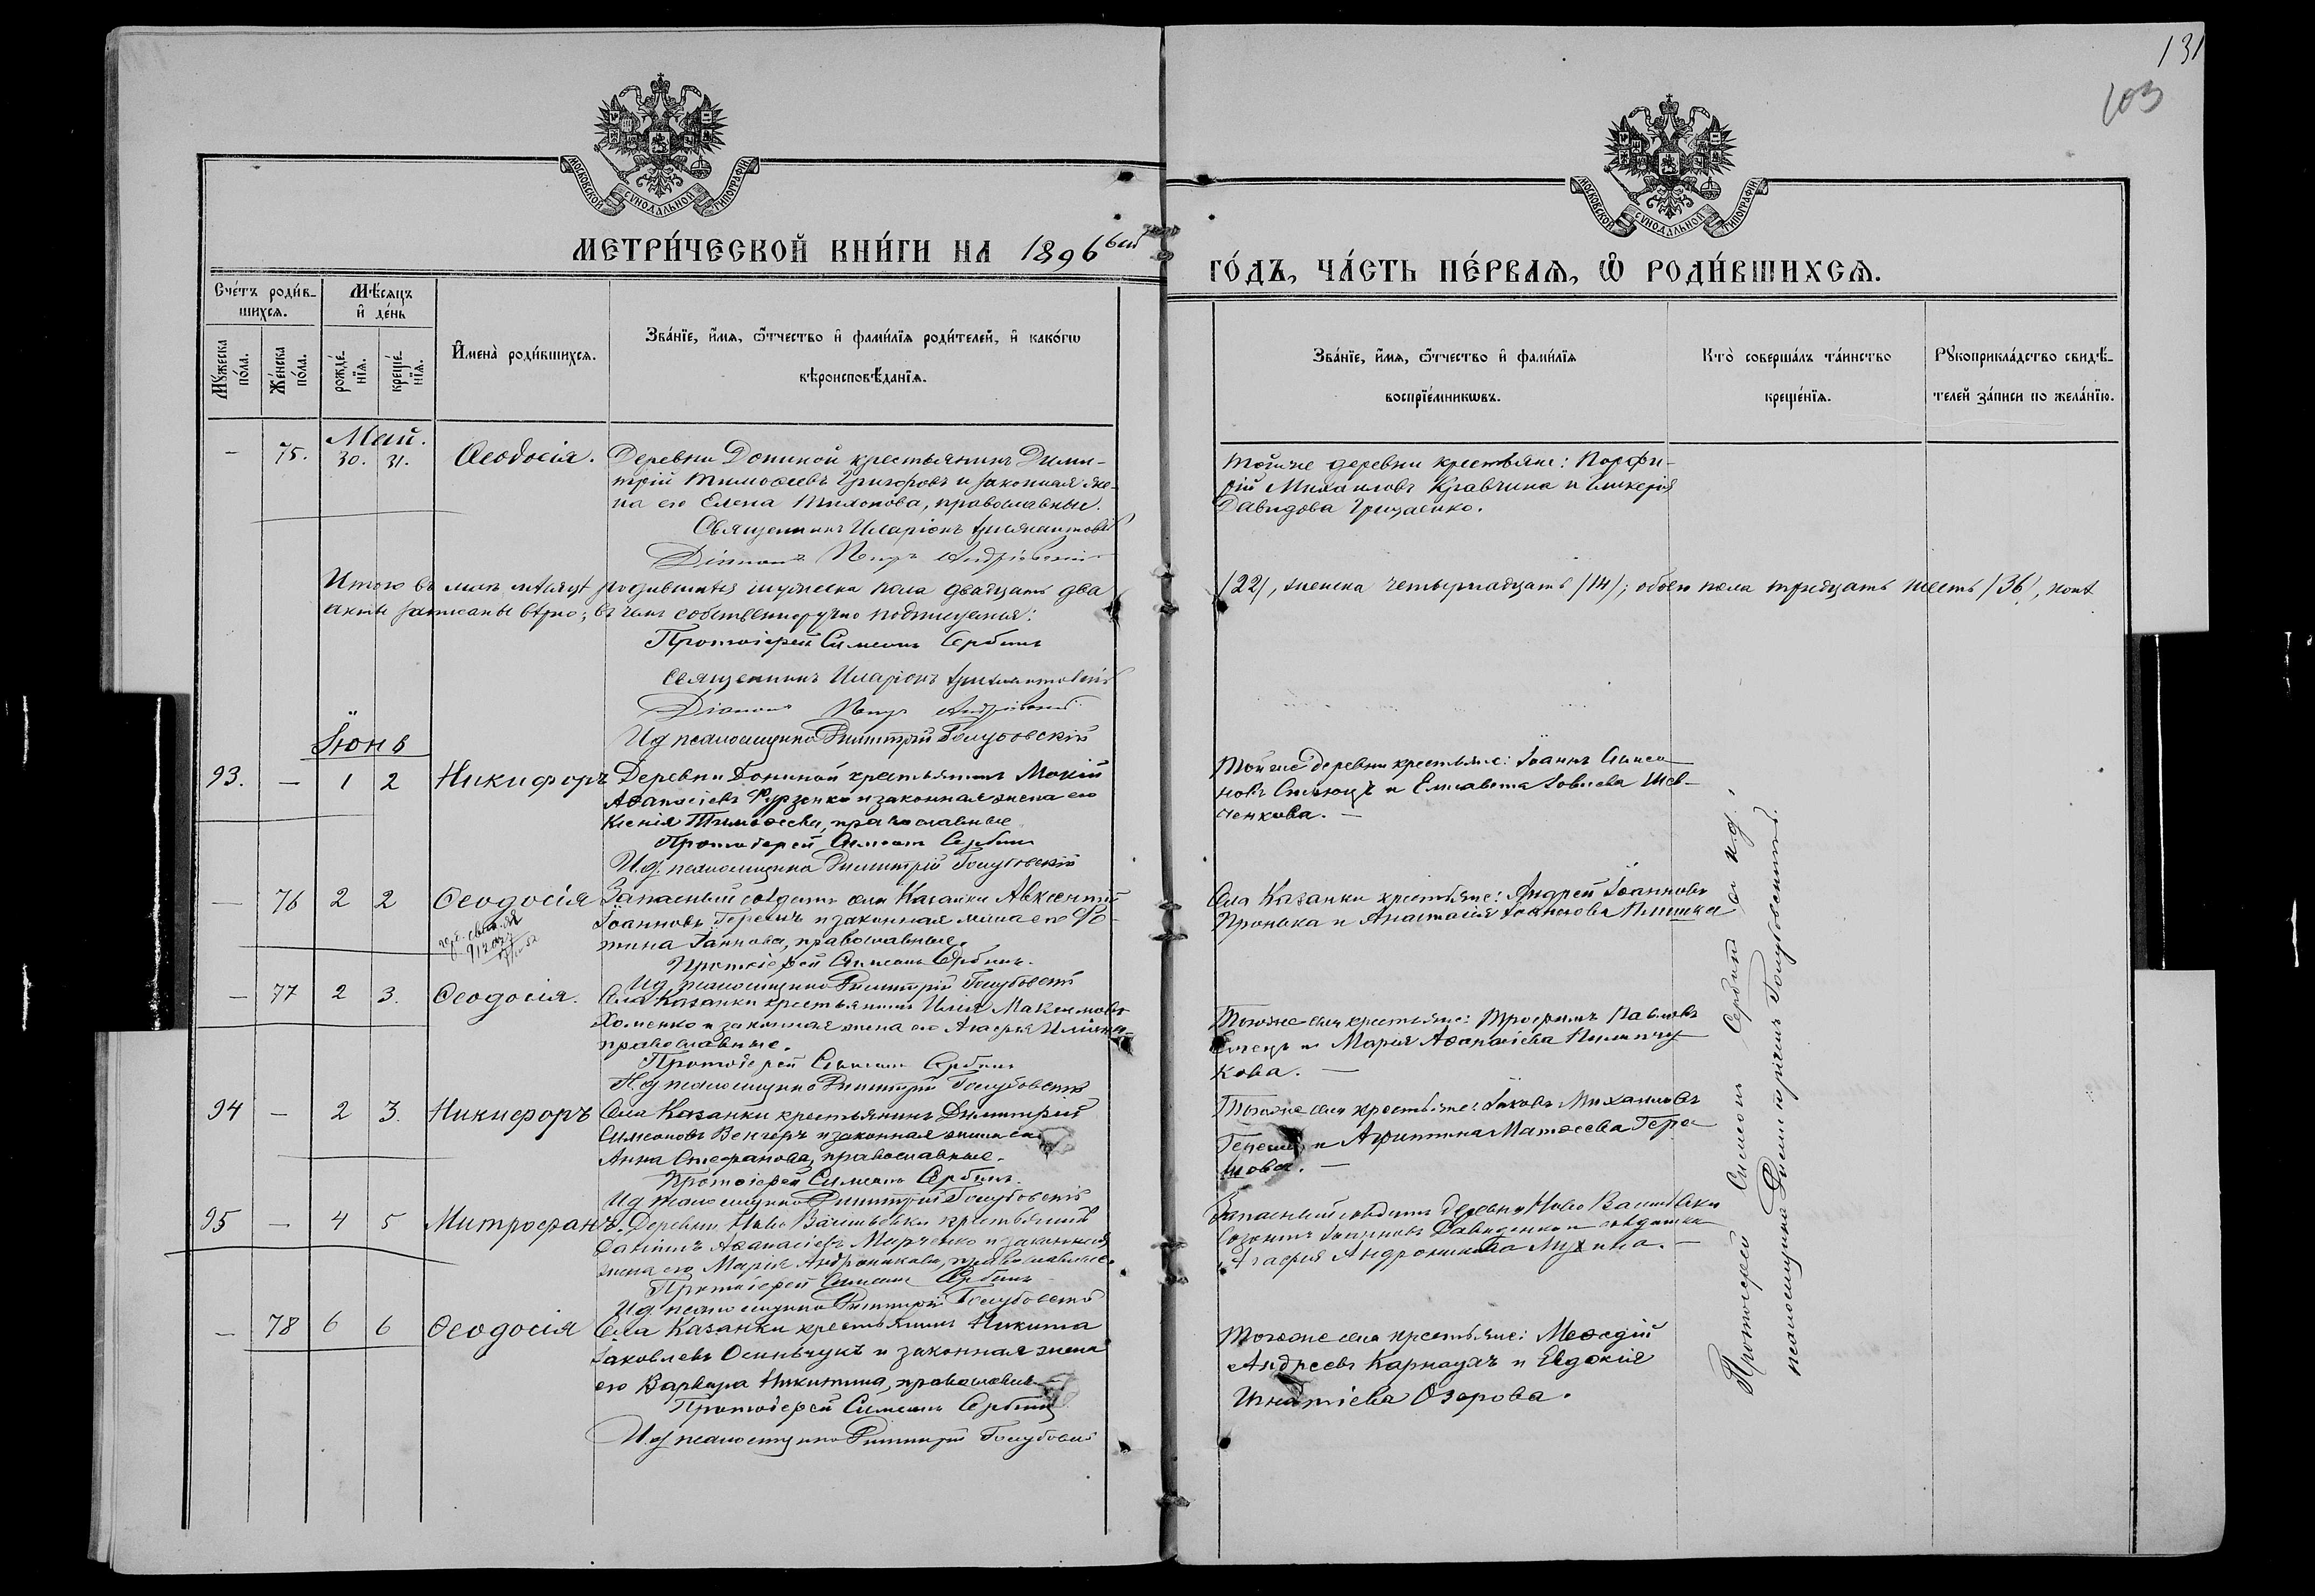 131
103
МОСКОВСКОЙ СУНОДАЛЬНОЙ ТИПОГРАФІИ
МОСКОВСКОЙ СУНОДАЛЬНОЙ ТИПОГРАФІИ
МЕТРИ́ЧЕСКОЙ КНИ́ГИ НА 1896
ГО́ДЪ, ЧА́СТЬ ПЕ́РВАѦ, Ѽ РОДИ́ВШИХСѦ.
Сче́тъ роди́в-
шихсѧ.
Мѣ́сѧцъ
и҆ де́нь
Мꙋ́жеска по́ла.
Же́нска по́ла.
рожде́нїѧ.
креще́нїѧ.
И҆мена̀ роди́вшихсѧ.
Зва́нїе, и҆́мѧ, ѻ҆́тчество и҆ фами́лїѧ роди́телей, и҆ како́гѡ
вѣроисповѣ́данїѧ.
Зва́нїе, и҆́мѧ, ѻ҆́тчество и҆ фами́лїѧ
воспрїе́мникѡвъ.
Кто̀ соверша́лъ та́инство
креще́нїѧ.
Рꙋкоприкла́дство свидѣ́-
телей за́писи по жела́нїю.
Май.
— 75. 30. 31. Ѳеодосія. Деревни Дониной крестьянинъ Дими-
трій Тимоѳеевъ Григоровъ и законная же-
на его Елена Тихонова, православные.
Священникъ Иларіонъ
Діаконъ Петръ Андріевскій
Тойже деревни крестьяне: Порфи-
рій Михаиловъ Кравчина и Гликерія
Давидова Грищенко.
Итого въ маѣ мѣсяцѣ родившихся мужеска пола двадцать два /22/, женска четырнадцать /14/; обоего пола тридцать шесть /36/, коихъ
акты записаны вѣрно; въ чемъ собственноручно подписуемся:
Протоіерей Симеонъ Сербинъ
Священникъ Иларіонъ
Діаконъ Петръ Андріевскій
И д псаломщика Димитрій Голубовскій
Іюнь
93. — 1 2 Никифоръ Деревни Дониной крестьянинъ Мокій
Аѳанасіевъ Фурзенко и законная жена его
Ксенія Тимоѳеева, православные
Протоіерей Симеонъ Сербинъ
И.д. псаломщика Димитрій Голубовскій
Тойже деревни крестьяне: Іоаннъ Симео-
новъ и Елисавета Іовлева Шев-
ченкова. —
— 76 2 2 Ѳеодосія Запасный солдатъ села Казанки Авксентій
Іоанновъ Герешъ и законная жена его Фо-
тина Іоаннова, православные.
Протоіерей Симеонъ Сербинъ.
И д псаломщика Димитрій Голубовскій
Села Казанки крестьяне: Андрей Іоанновъ
Пронька и Анастасія Іоаннова
— 77 2 3. Ѳеодосія. Села Казанки крестьянинъ Илія Максимовъ
Хоменко и законная жена его Агафія Иліина
православные.
Протоіерей Симеонъ Сербинъ
И.д псаломщика Димитрій Голубовскій
Тогоже села крестьяне: Трофимъ Павловъ
и Марія Аѳанасіева Пилипчу-
кова. —
94 — 2 3. Никифоръ Села Казанки крестьянинъ Димитрій
Симеоновъ Венгеръ и законная жена его
Анна Стефанова, православные.
Протоіерей Симеонъ Сербинъ.
И д псаломщика Димитрій Голубовскій
Тогоже села крестьяне: Іаковъ Михаиловъ
и Агрипина Матѳеева Гере-
шова. —
95 — 4 5 Митрофанъ. Деревни Ново Васильевки крестьянинъ
Даніилъ Аѳанасіевъ Марченко и законная
жена его Марія Андроникова, православные.
Протоіерей Симеонъ Сербинъ
И д. псаломщика Димитрій Голубовскій
Запасный солдатъ деревни Ново Васильевки
Созонтъ Іоанновъ Давиденко и солдатка
Агафія Андроникова Мухина. —
— 78 6 6 Ѳеодосія Села Казанки крестьянинъ Никита
Іаковлевъ Осипчукъ и законная жена
его Варвара Никитина, православные
Протоіерей Симеонъ Сербинъ
И.д псаломщика Димитрій Голубовскій
Тогоже села крестьяне: Меѳодій
Андреевъ Карнаухъ и Евдокія
Игнатіева Озерова.
Протоіерей Симеонъ Сербинъ и и.д.
псаломщика Димитрій Голубовскій.